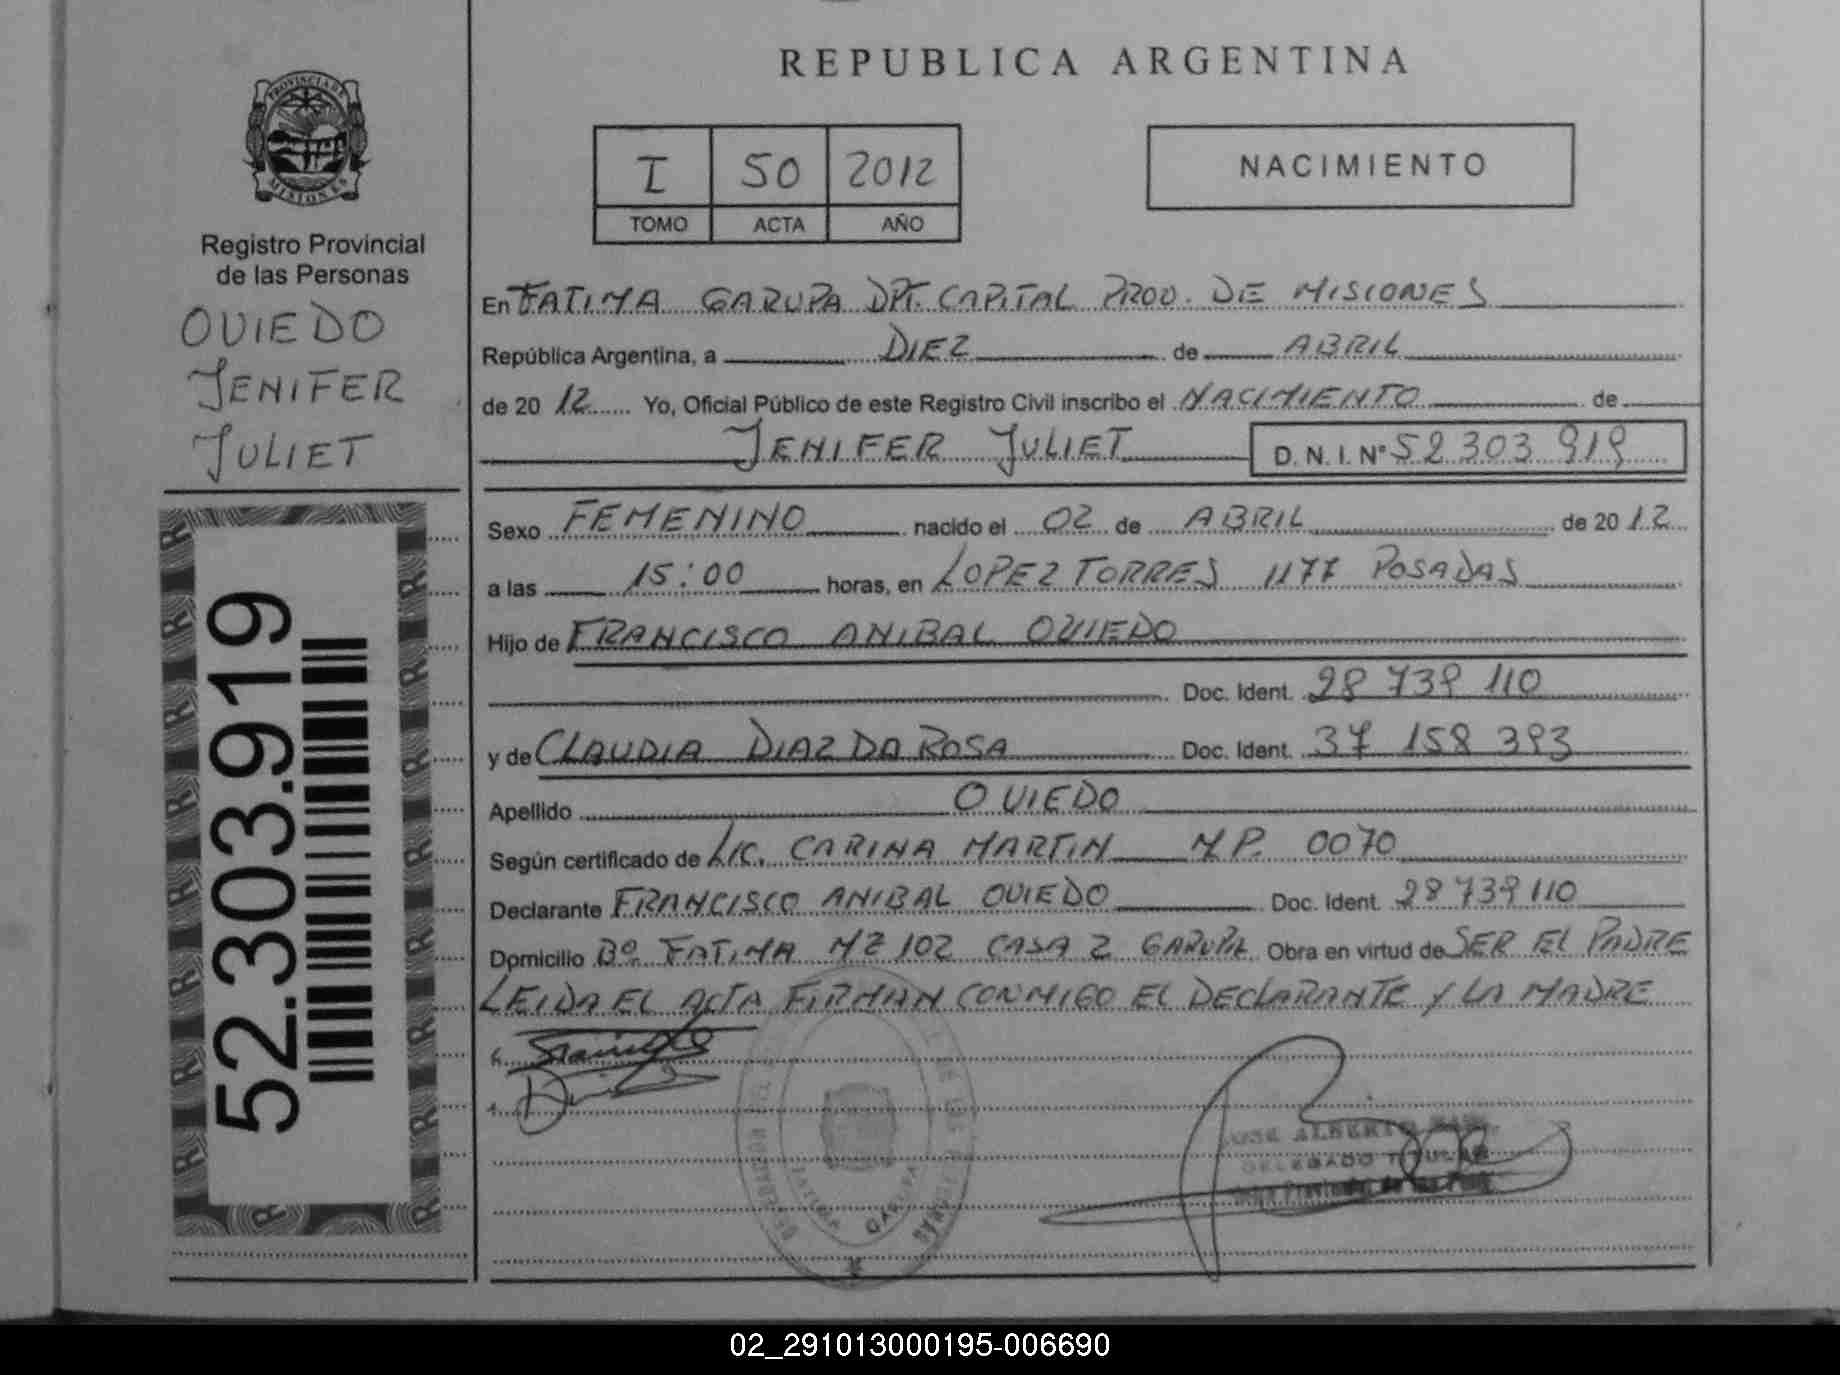 REPUBLICA ARGENTINA
PROVINCIA DE
MISIONES
Registro Provincial
de las Personas
OVIEDO
JENIFER
JULIET
52.303.919
I 50 2012
TOMO ACTA AÑO
NACIMIENTO
En FATIMA GARUPA DPT. CAPITAL PROV. DE MISIONES
República Argentina, a DIEZ de ABRIL
de 20 12 Yo, Oficial Público de este Registro Civil inscribo el NACIMIENTO de
JENIFER JULIET D.N.I. N° 52 303 919
Sexo FEMENINO nacido el 02 de ABRIL de 20 12
a las 15:00 horas, en LOPEZ TORRES 1177 POSADAS
Hijo de FRANCISCO ANIBAL OVIEDO
Doc. Ident. 28 739 110
y de CLAUDIA DIAZ DA ROSA Doc. Ident. 37 158 393
Apellido OVIEDO
Según certificado de LIC. CARINA MARTIN M P. 0070
Declarante FRANCISCO ANIBAL OVIEDO Doc. Ident. 28 739 110
Domicilio Bº FATIMA MZ 102 CASA 2 GARUPA Obra en virtud de SER EL PADRE
LEIDA EL ACTA FIRMAN CONMIGO EL DECLARANTE Y LA MADRE
JOSE ALBERTO
DELEGADO TITULAR
FATIMA GARUPA
02_291013000195-006690